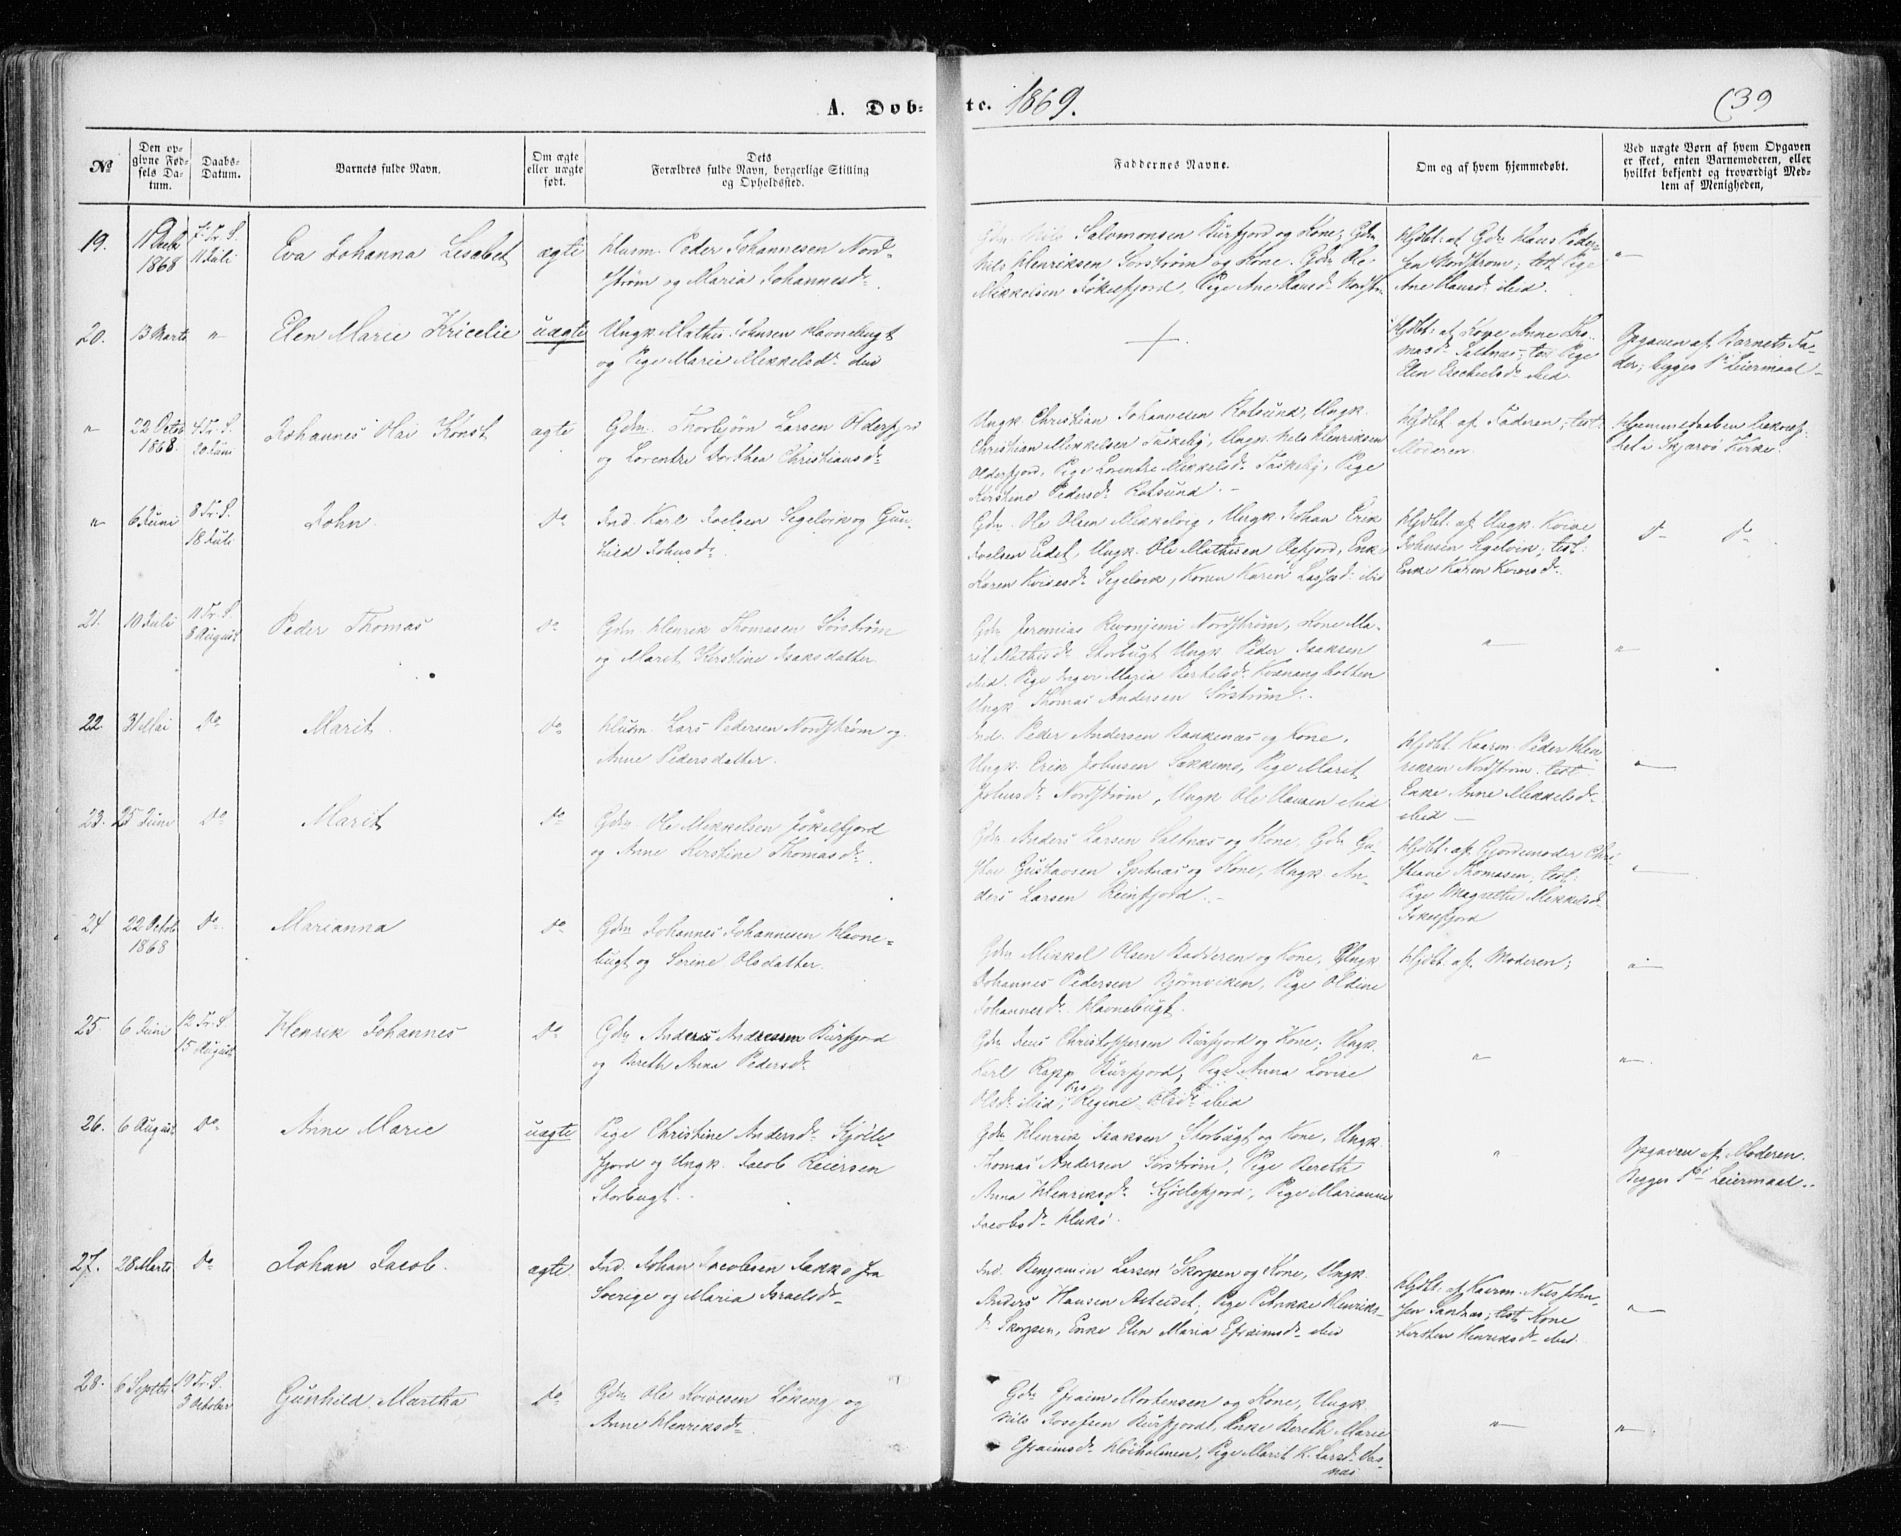 A. Døb-
te. 1869.
(39
№
Den op-
givne Fød-
sels Da-
tum.
Daabs-
Datum.
Barnets fulde Navn.
Om ægte
eller uægte
født.
Dets
Forældres fulde Navn, borgerlige Stilling
og Opholdssted.
Faddernes Navne.
Om og af hvem hjemmedøbt.
Ved uægte Børn af hvem Opgaven
er skeet, enten Barnemoderen, eller
hvilket bekjendt og troværdigt Med-
lem af Menigheden,
19.
11 Decbr
1868
7. Tr. S.
11 Juli
Eva Johanna Lisabet
ægte
Husm. Peder Johannesen Nord-
strøm og Maria Johannesdr.
Gdm. Nils Salomonsen Burfjord og Kone; Gdm
Nils Henriksen Sørstrøm og Kone. Gdm Ole
Mikkelsen Jøkelfjord, Pige Ane Hansdr.
Hjdbt: af Gdm Hans Peder-
sen Nordstrøm; test. Pige
Ane Hansdr ibid.
"
20.
13 Marts
"
Elen Marie Kricelie
uægte
Ungk. Mathis Johnsen Havnebugt
og Pige Marie Mikkelsdr ibid
+
Hjdbt: af Kone Anne Tho-
masdr Saltnæs; test Pige
Elen Esekielsdr ibid.
Opgaven af Barnets Fa-
der; begges 1ste Leiermaal
"
22 Octbr
1868.
4 Tr. S.
20 Juni
Johannes Olai Konst
ægte
Gdm. Thorbjørn Larsen Olderfjord
og Lorentze Dorthea Christiansdr
Ungk. Christian Johannesen Rotsund, Ungk.
Christian Mikkelsen Taskeby, Ungk. Nils Henriksen
Olderfjord, Pige Lorentze Mikkelsdr Taskeby, Pige
Kirstine Pedersdr Rotsund. -
Hjdbt af Faderen, test:
Moderen.
Hjemmedaaben bekræf-
tet i Skjærvø Kirke.
"
6 Juni
8 Tr. S.
18 Juli
John
do
Ind. Karl Joelsen Segelvik og Gun-
hild Johnsdr.
Gdm. Ole Olsen Mikkelvig, Ungk. Johan Erik
Joelsen Eidet, Ungk. Ole Mathisen Oxfjord, Enke
Karen Koivesdr Segelvik, Konen Karen Lassesdr ibid
Hjdbt: af Ungk. Koive
Johnsen Segelvik; test:
Enke Karen Koivesdr.
do do
21.
10 Juli
11 Tr. S.
8 August
Peder Thomas
do
Gdm. Henrik Thomasen Sørstrøm
og Maret Kirstine Isaksdatter
Gdm Jeremias Kvonjemi Nordstrøm, Kone Ma-
rit Mathisdr Storbugt Ungk Peder Isaksen
ibid. Pige Inger Maria Bertelsdr Kvænangbotten
Ungk Thomas Andersen Sørstrøm.
"
"
22
31 Mai
do
Marit
do
Husm. Lars Pedersen Nordstrøm og
Anne Pedersdatter.
Ind. Peder Andersen Bankenæs og Kone,
Ungk. Erik Johnsen Sækkemo, Pige Maret
Johnsdr Nordstrøm, Ungk Ole Hansen ibid
Hjdbt. Kaarm. Peder Hen-
riksen Nordstrøm, test.
Enke Anne Mikkelsdr
ibid -
"
23.
25 Juni
do
Marit
do
Gdm. Ole Mikkelsen Jøkelfjord
og Anne Kirstine Thomasdr.
Gdm Anders Larsen Saltnæs og Kone. Gdm Gu-
stav Gustavsen Spitnæs og Kone, Ungk. An-
ders Larsen Reinfjord. -
Hjdbt: af Gjordemoder Chri-
stiane Thomasen, test:
Pige Magrethe Mikkelsdr
Jøkelfjord
"
24
22 Octob
1868
do
Marianna
do
Gdm Johannes Johannesen Havne-
bugt og Serine Olsdatter.
Gdm Mikkel Olsen Badderen og Kone, Ungk
Johannes Pedersen Bjørnviken, Pige Oldine
Johannesdr Havnebugt.
Hjdbt. af Moderen;
"
25.
6 Juni
12 Tr. S.
15 August
Henrik Johannes
do
Gdm Anders Andressen Burfjord
og Bereth Anna Pedersdr
Gdm Jens Christophersen Burfjord og Kone; Ungk.
Karl Rapp Burfjord, Pige Anna Lovise
Olsdr ibid, Pige Regine Olsdr ibid
"
"
26.
6 August
do
Anne Marie
uægte
Pige Christine Andersdr Kjølle-
fjord og Ungk. Jacob Reiersen
Storbugt.
Gdm Henrik Isaksen Storbugt og Kone, Ungk.
Thomas Andersen Sørstrøm, Pige Bereth
Anna Henriksdr Kjøllefjord, Pige Marianne
Jacobsdr Hukø.
"
Opgaven af Moderen.
Begges 1ste Leiermaal.
27.
28 Marts
do
Johan Jacob.
ægte.
Ind. Johan Jacobsen Jakko fra
Sverige og Maria Israelsdr
Ind. Benjamin Larsen Skorpen og Kone, Ungk
Anders Hansen Alteidet, Pige Petrikke Henriks-
dr Skorpen, Enke Elen Maria Efraimsdr ibid
Hjdbt. af Kaarm. Nils John-
sen Sandnæs, test. Kone
Kirsten Henriksdr ibid.
"
28.
6 Septbr
19 Tr. S.
3 October
Gunhild Martha
do
Gdm Ole Koivesen Løkeng og
Anne Henriksdr
Gdm Efraim Mortensen og Kone, Ungk.
Nils Josefsen Burfjord, Enke Bereth Marie
Efraimsdr Høiholmen, Pige Marit K. Larsdr
"
"